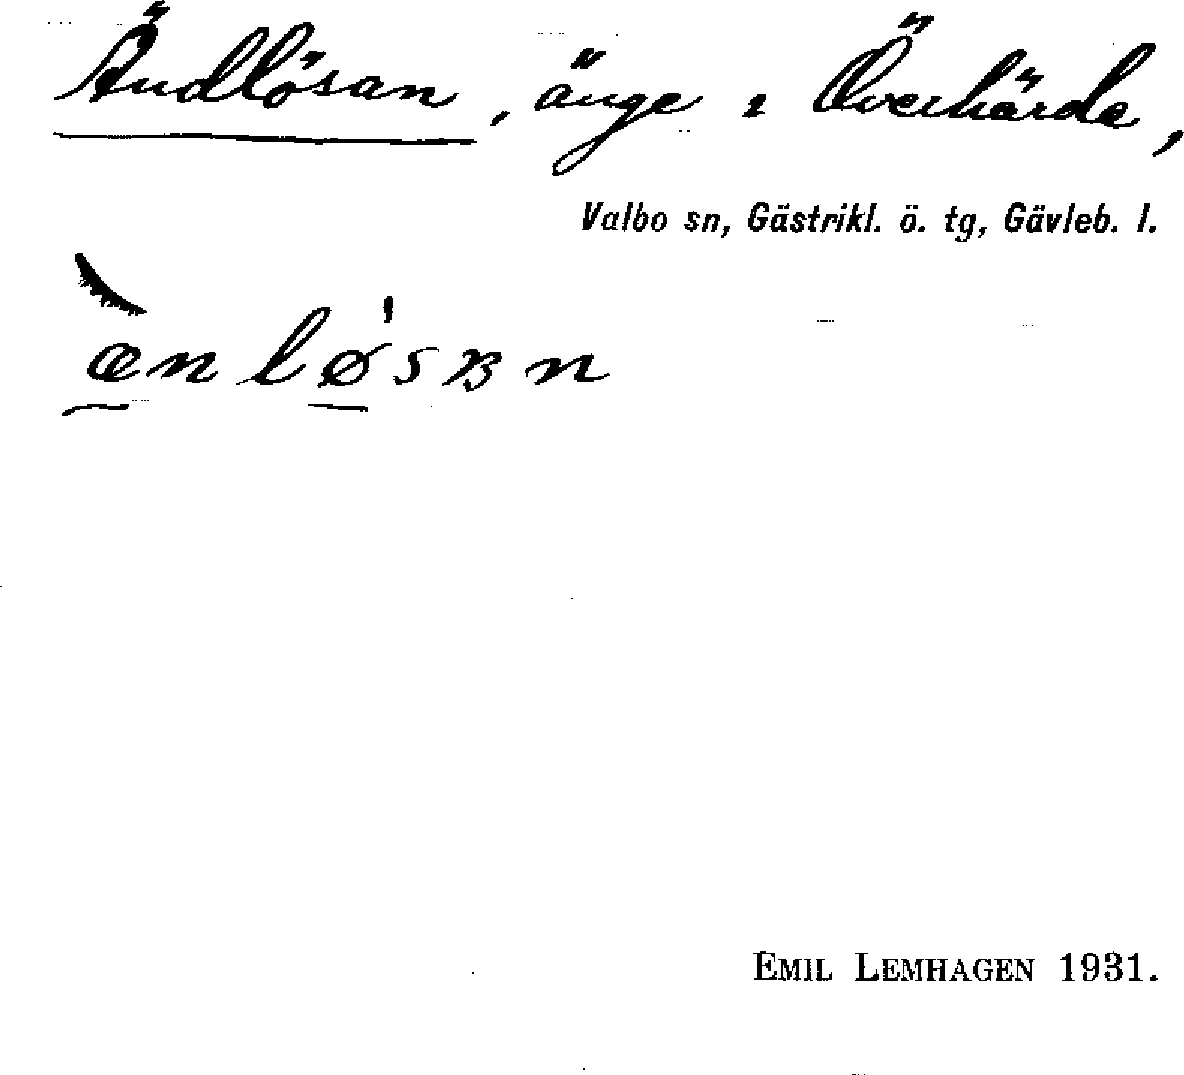 Ändlösan, änge i Överhärde,
Valbo sn, Gästrikl. ö. tg, Gävleb. l.
æ̀nløˈsʙn
EMIL LEMHAGEN 1931.